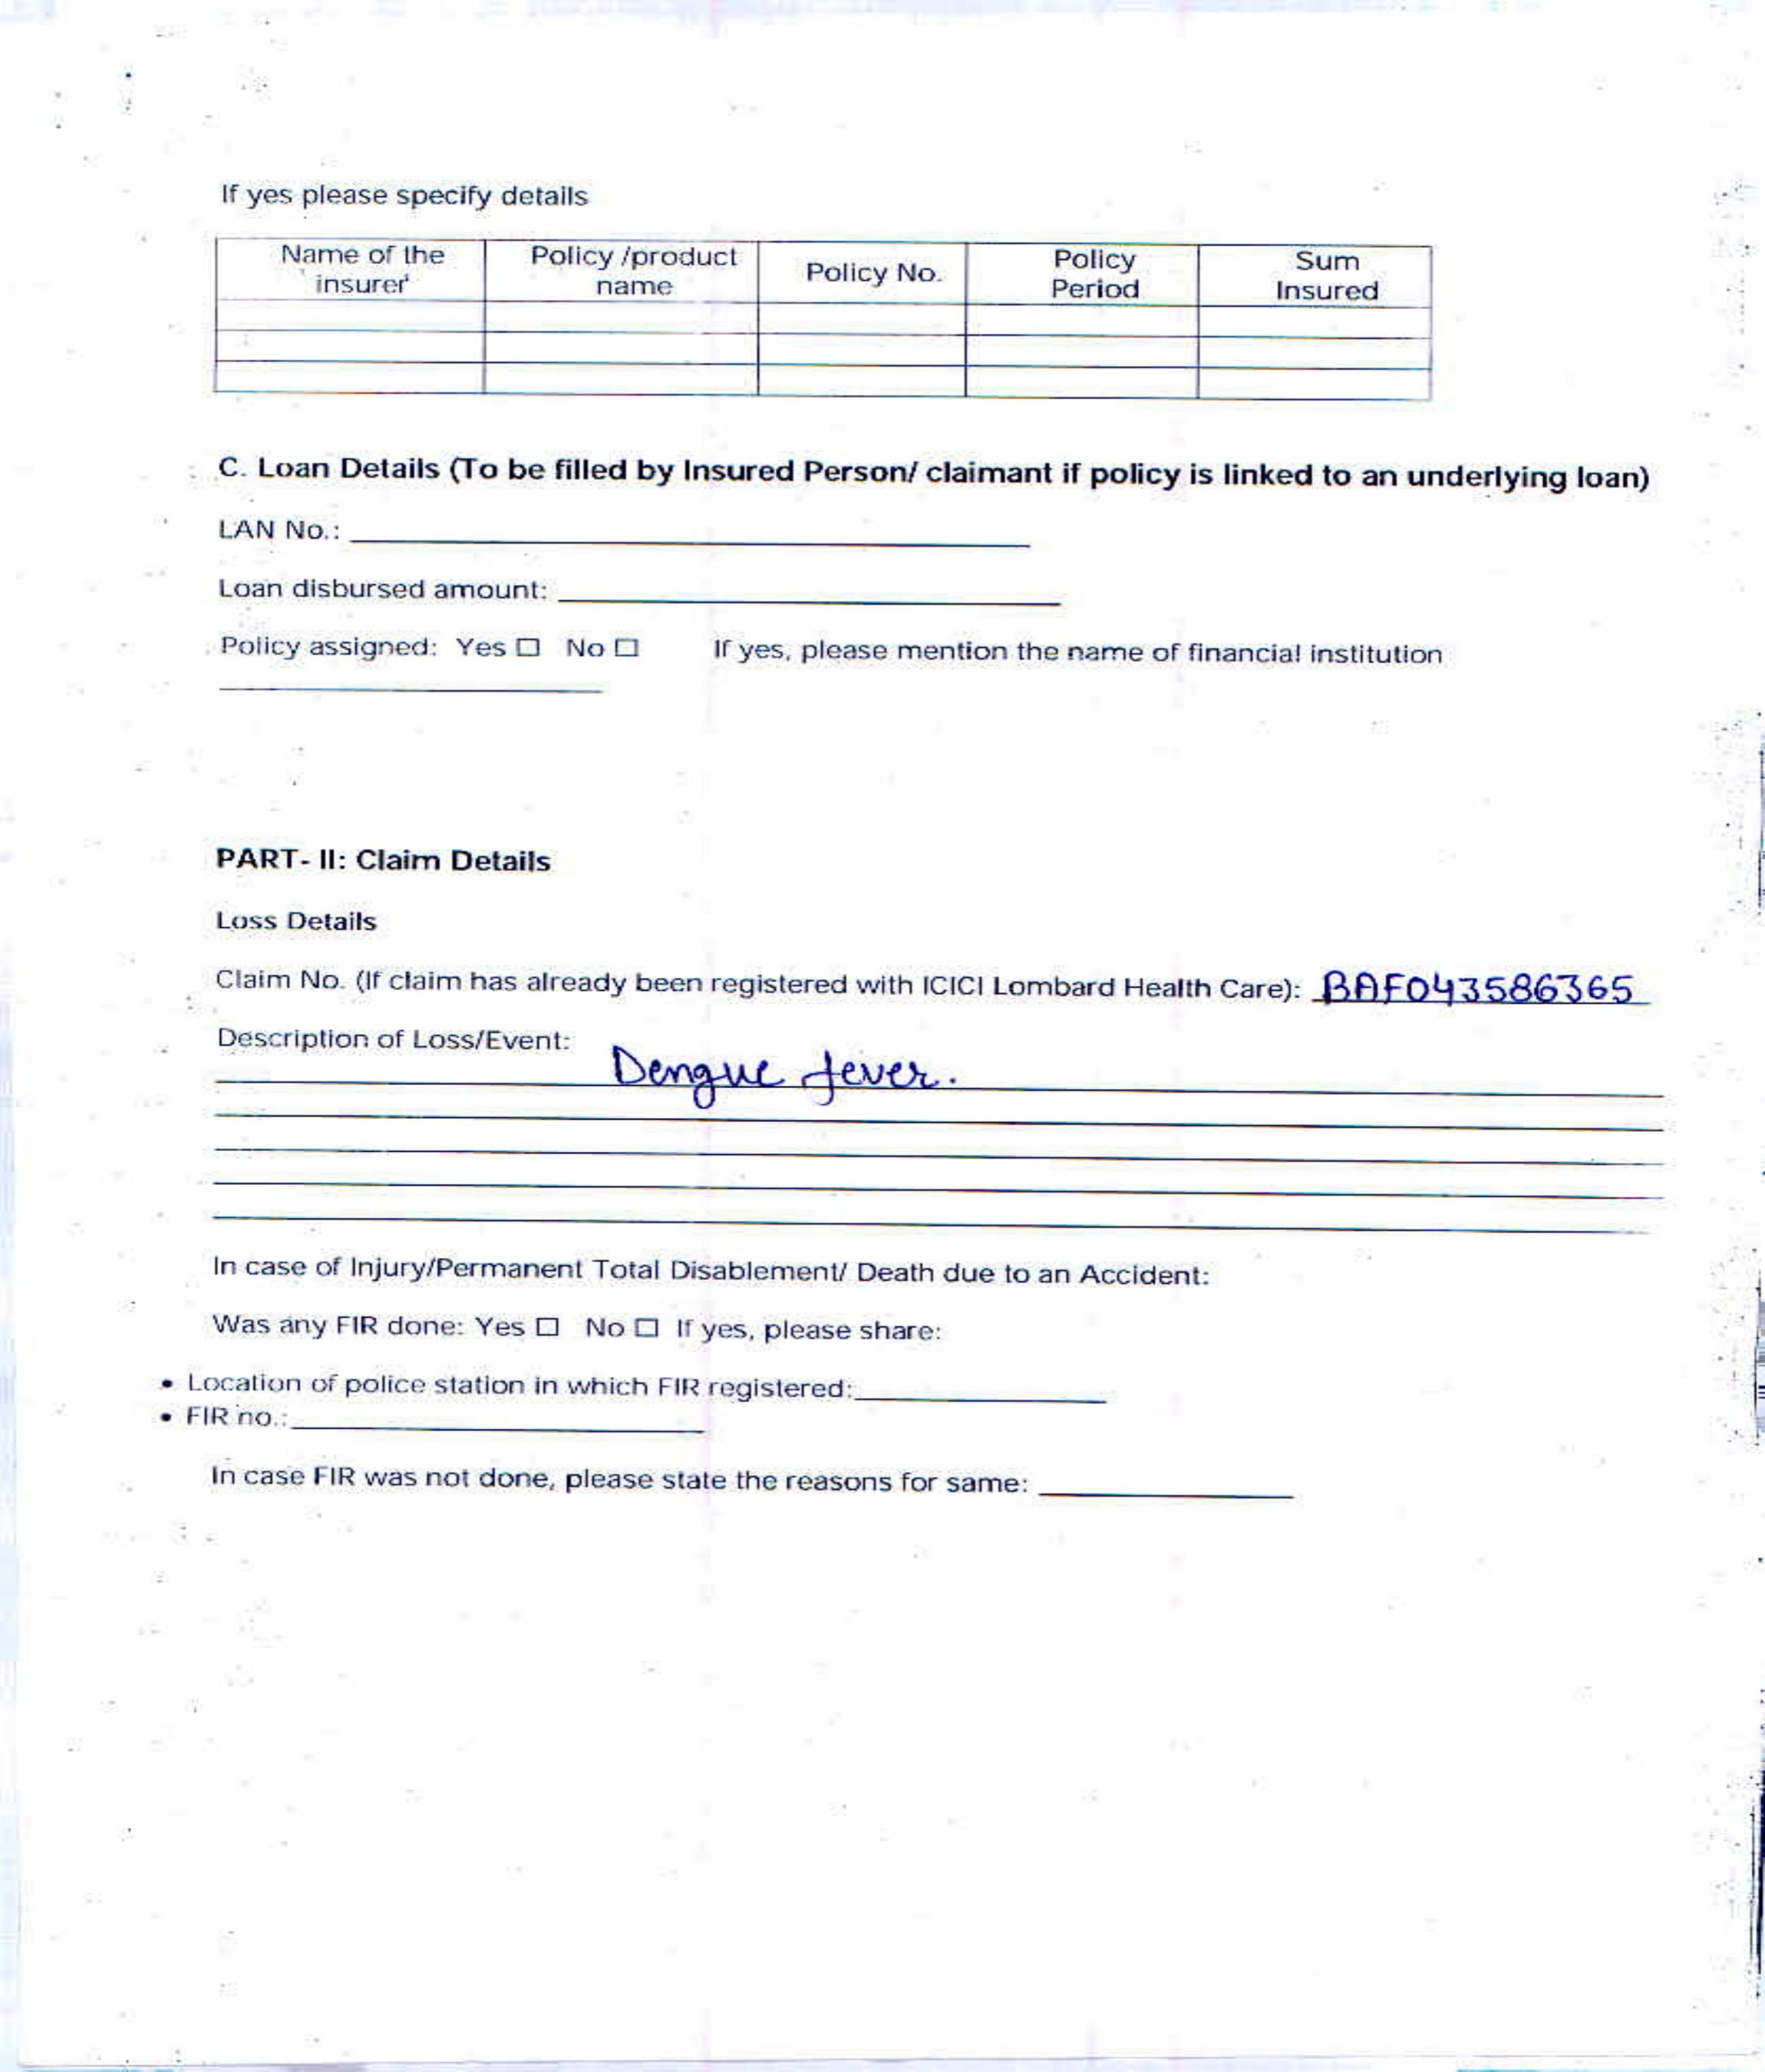 If yes please specify details
Name of the insurer Policy /product name Policy No. Policy Period Sum Insured
C. Loan Details (To be filled by Insured Person/ claimant if policy is linked to an underlying loan)
LAN No.:
Loan disbursed amount:
Policy assigned: Yes ☐ No ☐ If yes, please mention the name of financial institution
PART- II: Claim Details
Loss Details
Claim No. (If claim has already been registered with ICICI Lombard Health Care): BAF043586365
Description of Loss/Event:
Dengue fever.
In case of Injury/Permanent Total Disablement/ Death due to an Accident:
Was any FIR done: Yes ☐ No ☐ If yes, please share:
• Location of police station in which FIR registered:
• FIR no.:
In case FIR was not done, please state the reasons for same: